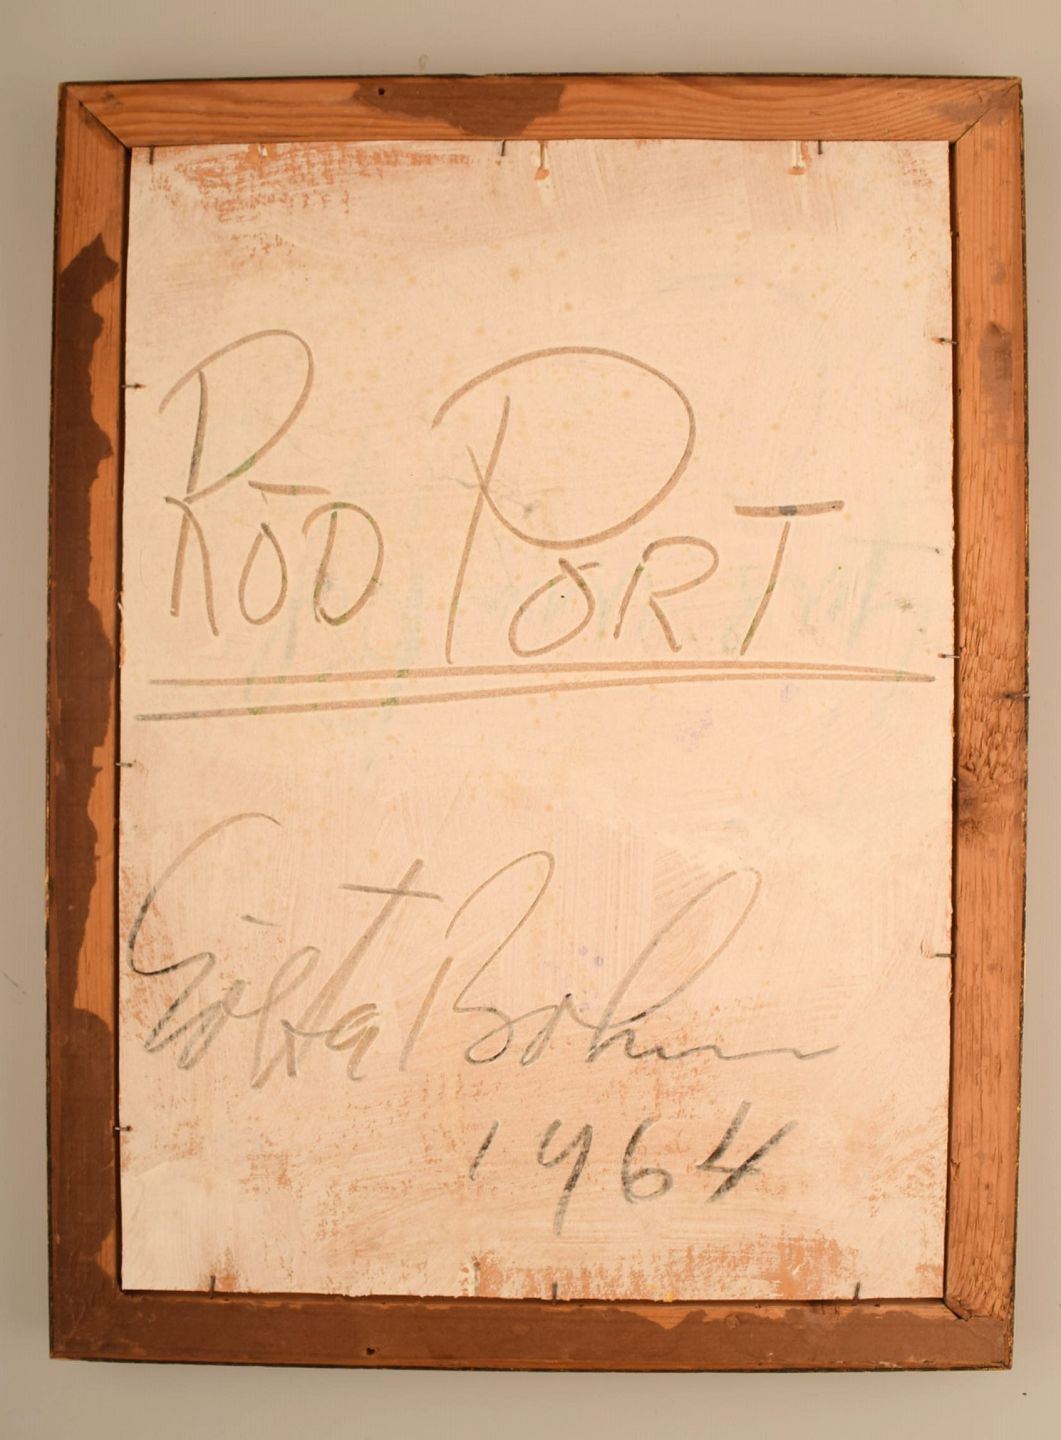 RÖD PORT
Gösta Bohm
1964